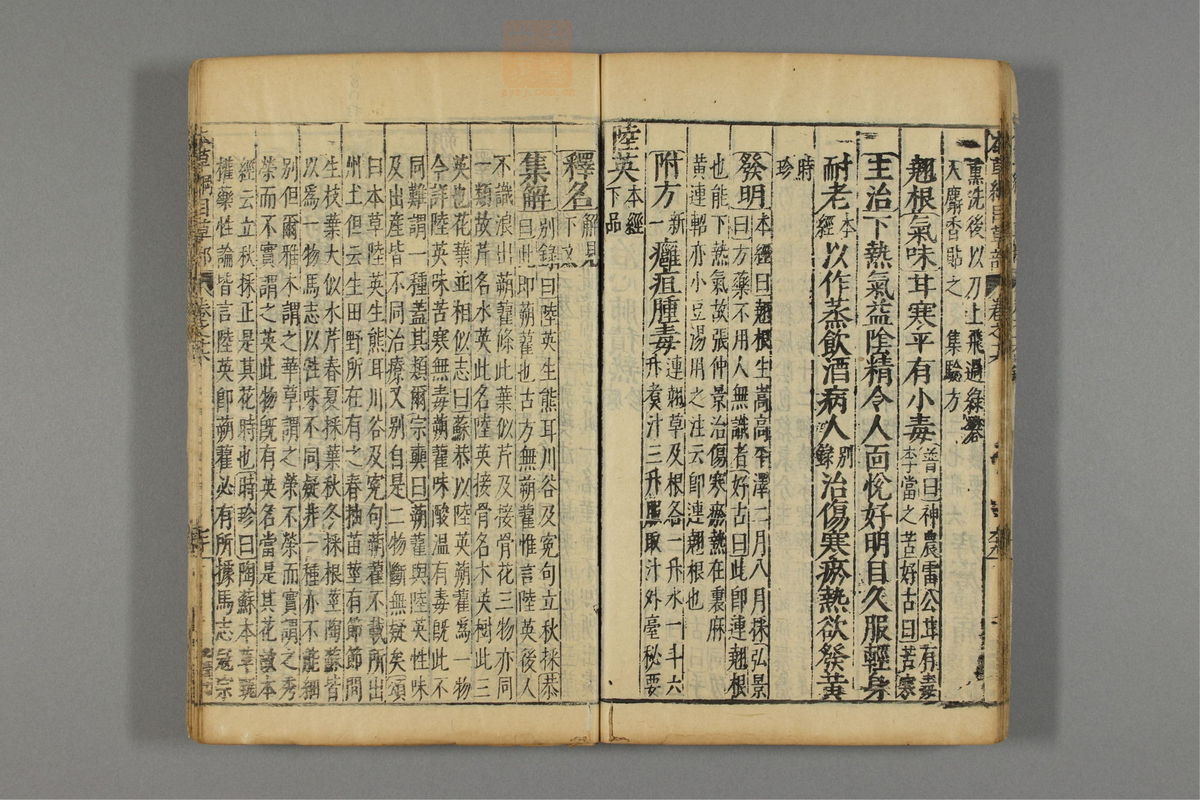 熏洗後以刀上飛過綠礬
入麝香貼之 集驗方
翹根氣味甘寒平有小毒普曰神農雷公甘有毒
李當之苦好古曰苦寒
主治下熱氣益陰精令人面悅好明目久服輕身
耐老本經以作蒸飲酒病人別錄治傷寒瘀熱欲發黃
時珍
發明本經曰翹根生嵩高平澤二月八月採弘景
曰方藥不用人無識者好古曰此即連翹根
也能下熱氣故張仲景治傷寒瘀熱在裏麻
黃連軺赤小豆湯用之注云即連翹根也
附方新一癰疽腫毒連翹草及根各一升水一斗六
升煑汁三升服取汗外臺秘要
陸英本經下品
釋名解見下文
集解別錄曰陸英生熊耳川谷及冤句立秋採恭
曰此即蒴藋也古方無蒴藋惟言陸英後人
不識浪出蒴藋條此葉似芹及接骨花三物亦同
一類故芹名水英此名陸英接骨名木英樹此三
英也花葉並相似志曰蘇恭以陸英蒴藋爲一物
今詳陸英味苦寒無毒蒴藋味酸溫有毒旣此不
同難謂一種蓋其類爾宗奭曰蒴藋與陸英性味
及出產皆不同治療又別自是二物斷無疑矣頌
曰本草陸英生熊耳川谷及冤句蒴藋不載所出
州土但云生田野所在有之春抽苗莖有節節間
生枝葉大似水芹春夏採葉秋冬採根莖陶蘇皆
以爲一物馬志以性味不同疑非一種亦不能細
別但爾雅木謂之華草謂之榮不榮而實謂之秀
榮而不實謂之英此物旣有英名當是其花故本
經云立秋採正是其花時也時珍曰陶蘇本草甄
權藥性論皆言陸英即蒴藋必有所據馬志寇宗
本草綱目草部 卷之十六
本草綱目草部 卷之十六